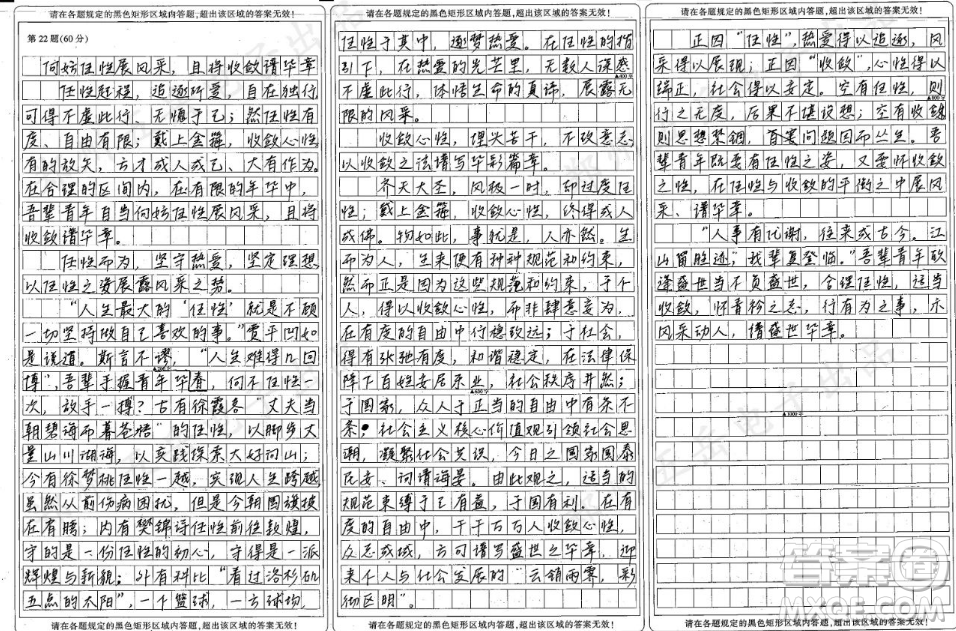 请在各题规定的黑色矩形区域内答题,超出该区域的答案无效!
第22题(60分)
何妨任性展风采，且将收敛谱华章
任性赶程，追逐所爱，自在独行
可得不虚此行、无憾于己；然任性有
度、自由有限；戴上金箍，收敛心性
有的放矢，方才成人成己、大有作为。
在合理的区间内，在有限的年华中，
吾辈青年自当何妨任性展风采，且将
收敛谱华章。
任性而为，坚守热爱，坚定理想
以任性之姿展露风采之梦。
“人生最大的‘任性’就是不顾
一切坚持做自己喜欢的事。”贾平凹如
是说道。斯言不谬，“人生难得几回
搏”，吾辈手握青年华春，何不任性一
次，放手一搏？古有徐霞客“丈夫当
朝碧海而暮苍梧”的任性，以脚步丈
量山川湖海，以实践探索大好河山；
今有徐梦桃任性一越，实现人生跨越
虽然从前伤病困扰，但是今朝国旗披
在肩膀；内有樊锦诗任性前往敦煌，
守的是一份任性的初心，守得是一派
辉煌与新貌；外有科比“看过洛杉矶
五点的太阳”，一个篮球，一方球场，
请在各题规定的黑色矩形区域内答题,超出该区域的答案无效!
请在各题规定的黑色矩形区域内答题,超出该区域的答案无效!
任性于其中，逐梦热爱。在任性的指
引下，在热爱的光芒里，无数人深感
不虚此行，体悟生命的真谛，展露无
限的风采。
收敛心性，埋头苦干，不改意志
以收敛之法谱写华彩篇章。
齐天大圣，风极一时，却过度任
性；戴上金箍，收敛心性，终得成人
成佛。物如此，事就是，人亦然。生
而为人，生来便有种种规范和约束，
然而正是因为这些规范和约束，于个
人，得以收敛心性，而非肆意妄为，
在有度的自由中行稳致远；于社会，
得有张弛有度，和谐稳定，在法律保
障下百姓安居乐业，社会秩序井然；
于国家，众人于正当的自由中有条不
紊。社会主义核心价值观引领社会思
潮，凝聚社会共识，今日之国家国泰
民安、河清海晏。由此观之，适当的
规范束缚于己有益，于国有利。在有
度的自由中，千千万万人收敛心性，
众志成城，方可谱写盛世之华章，迎
来个人与社会发展的“云销雨霁，彩
彻区明”。
请在各题规定的黑色矩形区域内答题,超出该区域的答案无效!
请在各题规定的黑色矩形区域内答题,超出该区域的答案无效!
正因“任性”，热爱得以追逐，风
采得以展现；正因“收敛”，心性得以
端正，社会得以安定。空有任性，则
行之无度，后果不堪设想；空有收敛
则思想禁锢，百害问题因而丛生。吾
辈青年既要有任性之姿，又要怀收敛
之性，在任性与收敛的平衡之中展风
采、谱华章。
“人事有代谢，往来成古今。江
山留胜迹；我辈复登临。”吾辈青年欣
逢盛世当不负盛世，合理任性，适当
收敛，怀青衿之志，行有为之事，亦
风采动人，谱盛世华章。
请在各题规定的黑色矩形区域内答题,超出该区域的答案无效!
答案圈
MXQE.COM